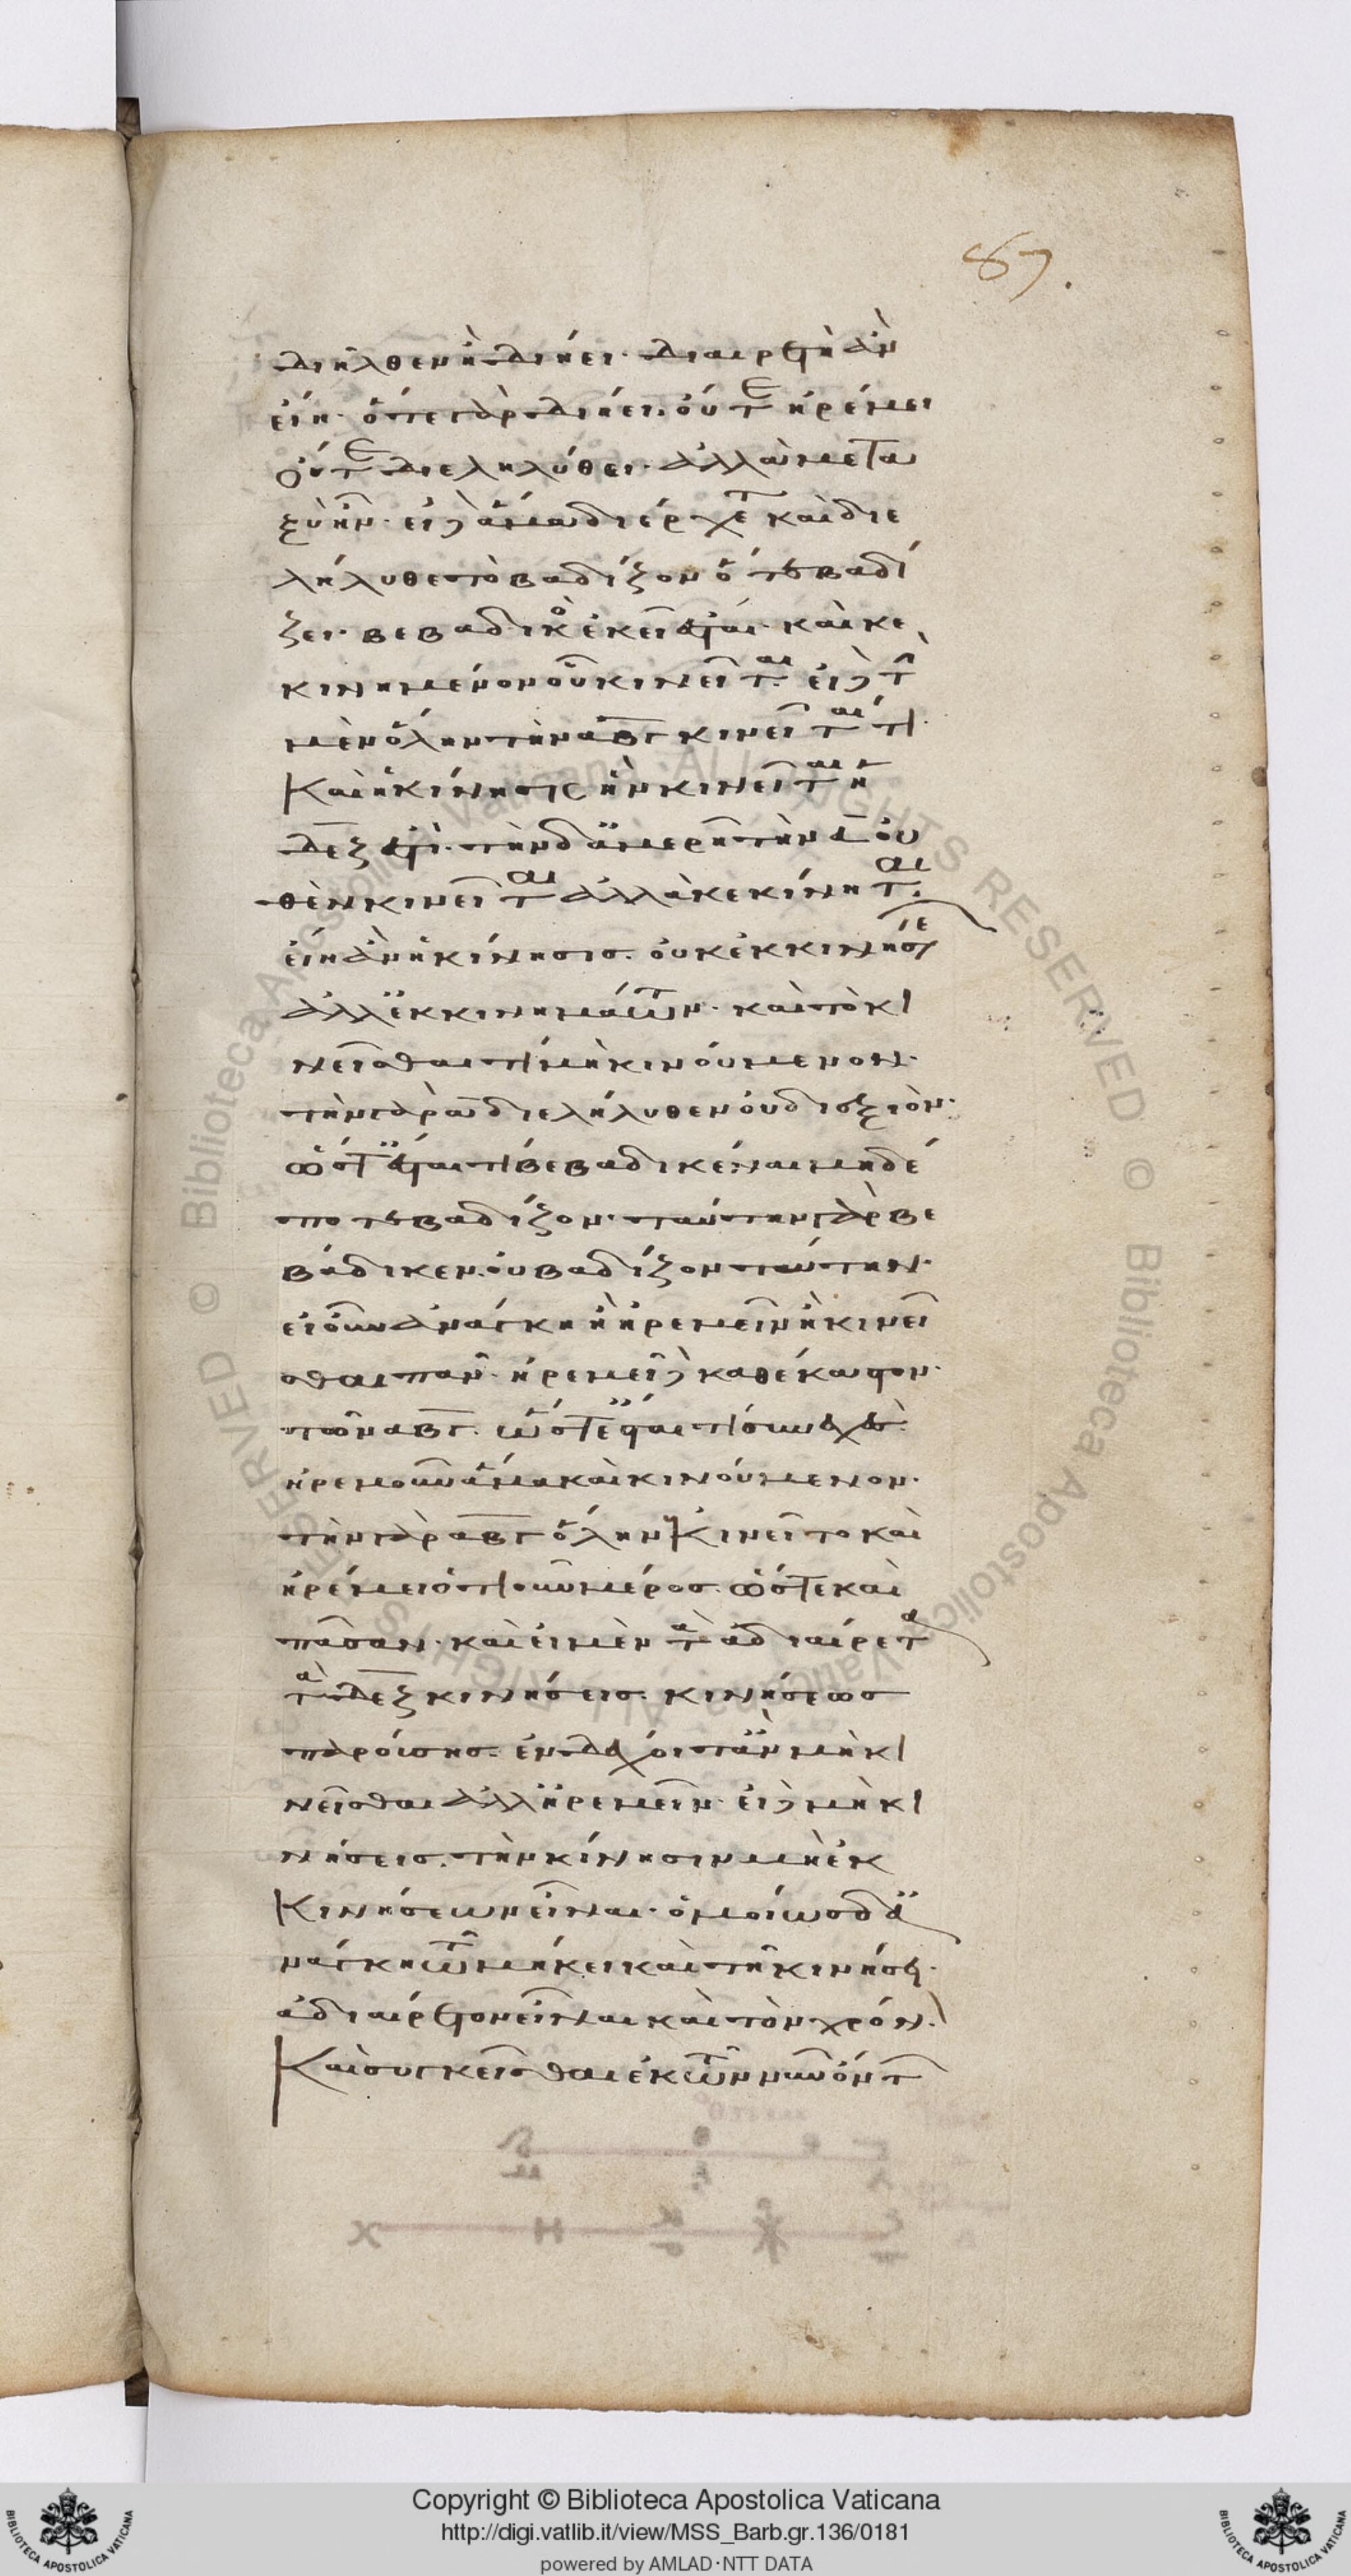 87.
διῆλθεν ἢ διήει· διαιρετὴ ἂν
εἴη· ὅτε γὰρ διήει. οὔτε ἠρέμει
οὔτε διεληλύθει· ἀλλὰ μετα
ξὺ ἦν· εἰ δὲ ἅμα διέρχεται καὶ διε
λήλυθε τὸ βαδίζον ὅτε βαδί
ζει· βεβαδικὸς ἐκεῖ ἔσται· καὶ κε
κινημένον οὗ κινεῖται. εἰ δὲ τὴν
μὲν ὅλην τὴν αβγ κινεῖταί τι·
καὶ ἡ κίνησις ἣν κινεῖται ἡ
δεζ ἐστι· τὴν δ' ἀμερῆ τὴν α οὐ
θὲν κινεῖται ἀλλὰ κεκίνηται.
εἴη ἂν ἡ κίνησις. οὐκ ἐκ κινήσεων
ἀλλ' ἐκ κινημάτων· καὶ τὸ κι
νεῖσθαί τι μὴ κινούμενον·
τὴν γὰρ α διελήλυθεν οὐ διεξιόν·
ὥστε ἔσται τι βεβαδικέναι μηδέ
ποτε βαδίζον· ταύτην γὰρ βε
βάδικεν. οὐ βαδίζον ταύτην·
εἰ οὖν ἀνάγκη ἢ ἠρεμεῖν ἢ κινεῖ
σθαι πᾶν· ἠρεμεῖ δὲ καθ' ἕκαστον·
τῶν αβγ. ὥστε ἔσται τι συνεχῶς
ἠρεμοῦν ἅμα καὶ κινούμενον·
τὴν γὰρ αβγ ὅλην κινεῖτο καὶ
ἠρέμει ὁτιοῦν μέρος. ὥστε καὶ
πᾶσαν· καὶ εἰ μὲν τὰ ἀδιαίρετα
τὰ δεζ κινήσεις. κινήσεως
παρούσης. ἐνδέχοιτ' ἂν μὴ κι
νεῖσθαι ἀλλ' ἠρεμεῖν· εἰ δὲ μὴ κι
νήσεις. τὴν κίνησιν μὴ ἐκ
κινήσεων εἶναι· ὁμοίως δ' ἀ
νάγκη τῷ μήκει καὶ τῇ κινήσει·
ἀδιαίρετον εἶναι καὶ τὸν χρόνον.
καὶ συγκεῖσθαι ἐκ τῶν νῦν ὄντ
Copyright © Biblioteca Apostolica Vaticana
http://digi.vatlib.it/view/MSS_Barb.gr.136/0181
powered by AMLAD·NTT DATA